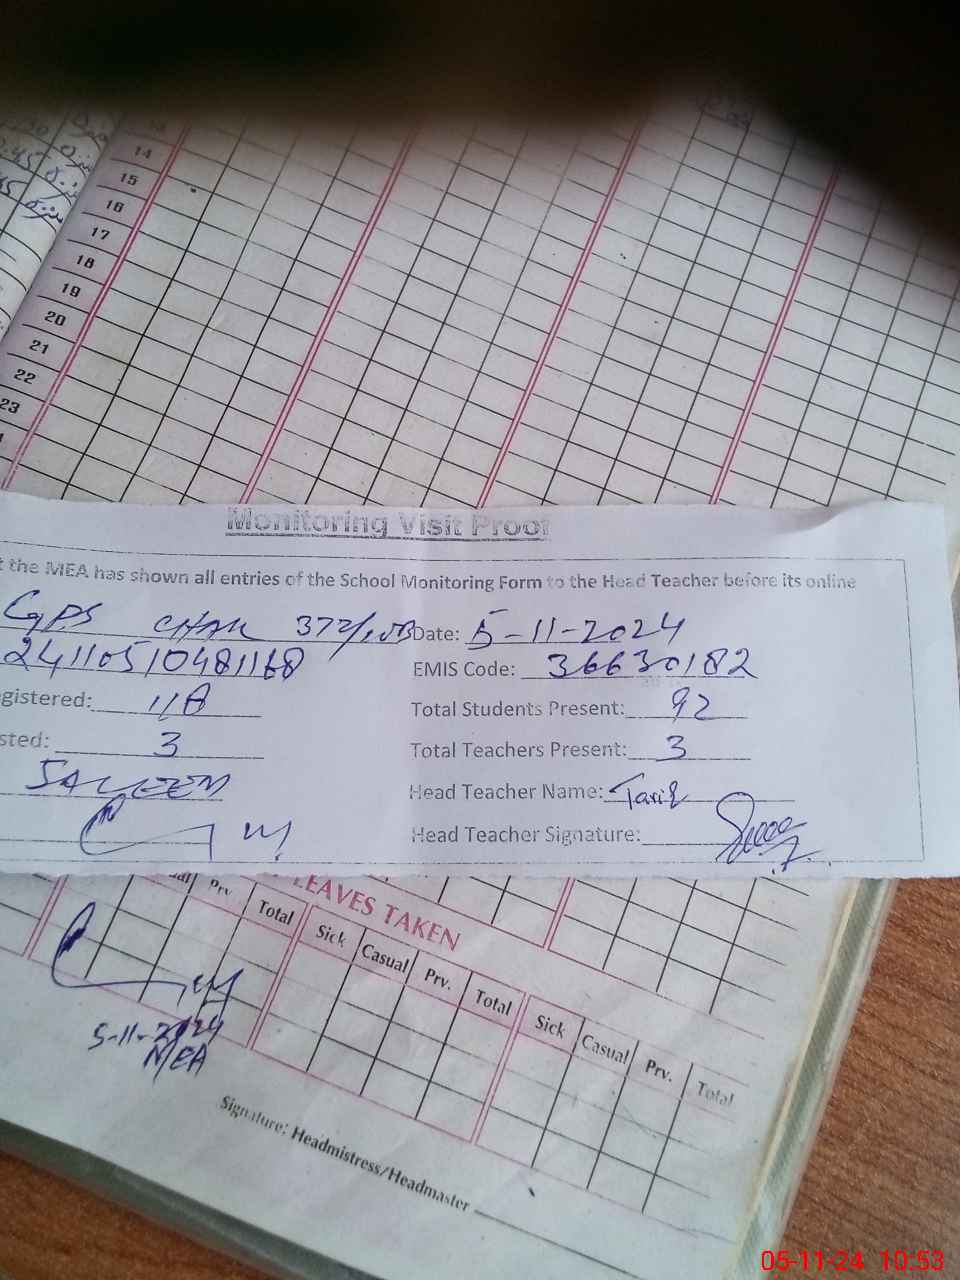 14
15
16
17
18
19
20
21
22
23
Monitoring Visit Proof
the MEA has shown all entries of the School Monitoring Form to the Head Teacher before its online
GPS CHAK 372/WB Date: 5-11-2024
24110510481168 EMIS Code: 36630182
gistered: 118 Total Students Present: 92
sted: 3 Total Teachers Present: 3
SALEEM Head Teacher Name: Tariq
Head Teacher Signature:
LEAVES TAKEN
Prv. Total Sick Casual Prv. Total Sick Casual Prv. Total
5-11-2024
MEA
Signature: Headmistress/Headmaster
05-11-24 10:53